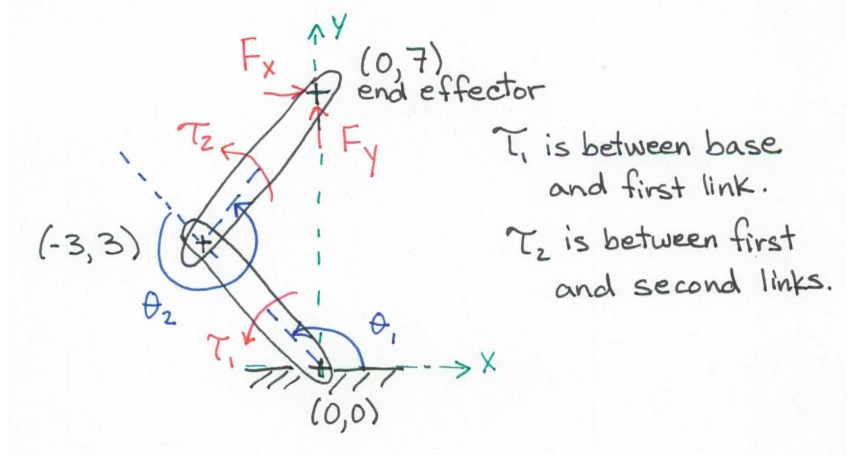 y
(0,7)
Fx
end effector
τ2
Fy
τ1 is between base
and first link.
(-3,3)
τ2 is between first
and second links.
θ2
τ1
θ1
x
(0,0)